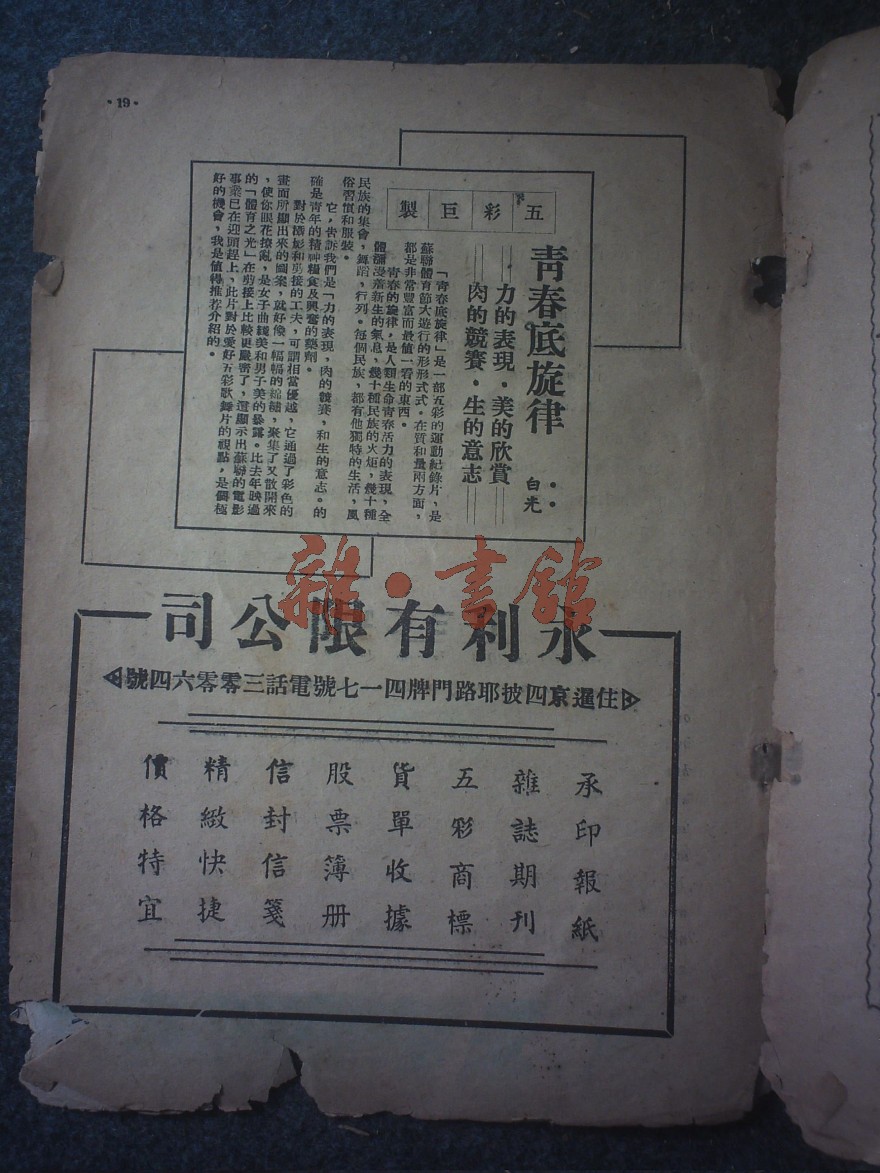 ·19·
五彩巨製
青春底旋律
··白光
==力的表現·美的欣賞==
==肉的競賽·生的意志==
「青春底旋律」是一部五彩的運動紀錄片，是
蘇聯體育節大遊行的形形式式。在質和量兩方面，
都是非常豐富而最值一看的東西。
青春的旋律，是人類生命青春活力的表現，全
體瀰漫着新生的氣息，幾十種民族的火炬，幾十種
民族的集會，舞蹈，行列。每個民族，都有他獨特的生活，風
俗習慣和服裝。
它，告訴我們是「力的表現，肉的競賽，和生的意志。的
確是青年的精神糧食及興奮的藥劑。
對於攝影和剪接的工夫，可謂相當優越，它通過了彩色的
畫面所顯出來的圖案，就好像一幅幅的錦繡，聚集了又散開來
，使你眼花撩亂，是女子曲綫美和男子美的暴露。比去年映過
的「體育之光」在剪接上比較更嚴密了，還顯示出蘇聯的電影
事業已在迎頭趕上，此片對於愛好五彩歌舞片的視點，是個極
好的機會，我是值得推荐介紹的。
雜·書館
永利有限公司
住暹京四披耶路門牌四一七號電話三零零六四號
承印報紙
雜誌期刊
五彩商標
貨單收據
股票簿册
信封信箋
精緻快捷
價格特宜